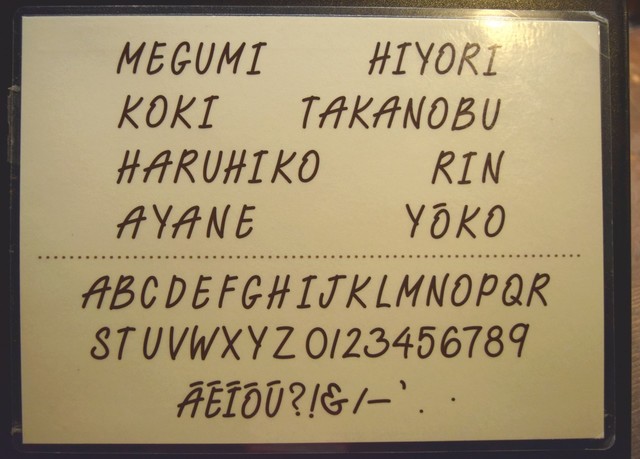 MEGUMI HIYORI
KOKI TAKANOBU
HARUHIKO RIN
AYANE YŌKO
ABCDEFGHIJKLMNOPQR
STUVWXYZ0123456789
ĀĒĪŌŪ?!&/—'. ·